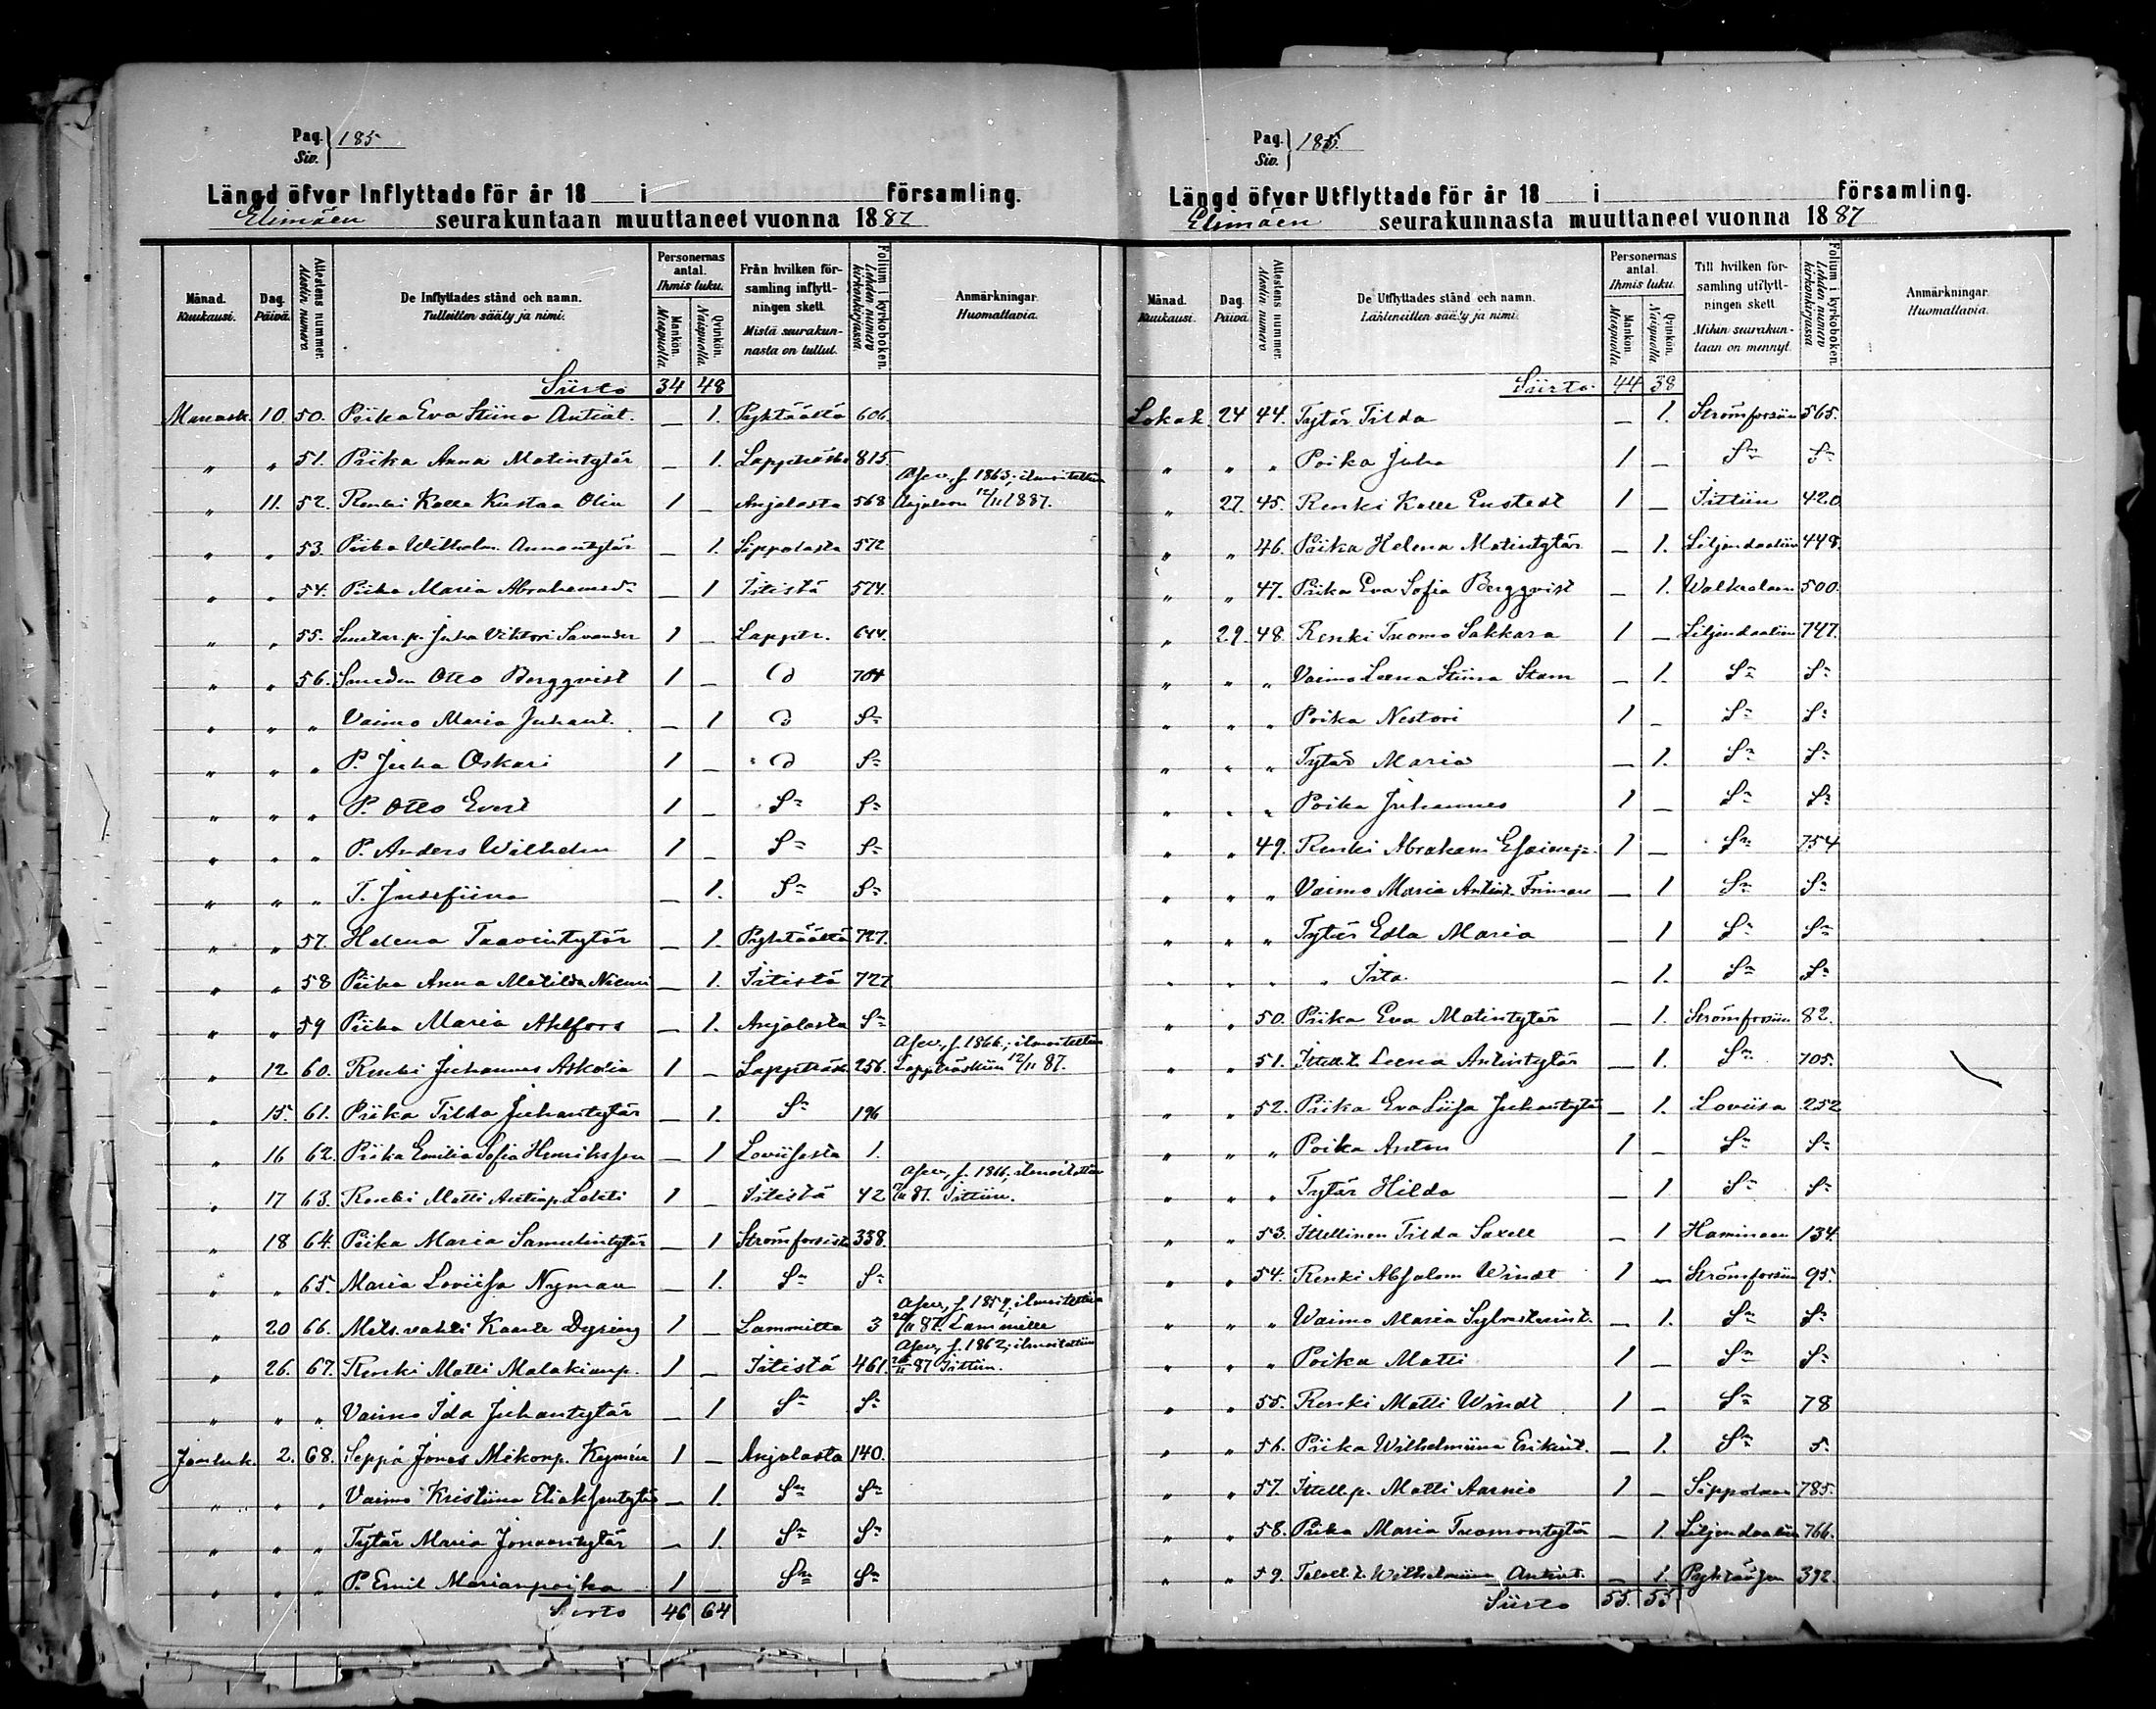 Pag. Siv. } 185
Längd öfver Inflyttade för år 18 i församling.
Elimäen seurakuntaan muuttaneet vuonna 1887
Månad. Kuukausi.
Dag. Päivä.
Attestens nummer. Alestin numero
De Inflyttades stånd och namn. Tulleitten sääty ja nimi.
Personernas antal. Ihmis luku.
Mankön. Miespuolia.
Qvinkön. Naispuolia.
Från hvilken församling inflyttningen skett. Mistä seurakunnasta on tullut.
Folium i kyrkoboken. Lehden numero kirkonkirjassa.
Anmärkningar. Huomattavia.
Siirto 34 48
Marrask. 10. 50. Piika Eva Stiina Antint. — 1. Pyhtäältä 606.
" " 51. Piika Anna Matintytär — 1. Lappträsk 815.
" 11. 52. Renki Kalle Kustaa Olin 1 — Anjalasta 568 Asev. s. 1865; ilmoitettiin Anjalaan 12/11 1887.
" " 53. Piika Wilhelm. Annantytär — 1. Sippolasta 572
" " 54. Piika Maria Abrahamsd:r — 1 Iitistä 574.
" " 55. Juha Viktori Savander 1 — Lapptr. 644.
" " 56. Smeden Otto Bergqvist 1 — D 704
" " " Vaimo Maria Juhant. — 1 D S:n
" " " P. Juha Oskari 1 — D S:n
" " " P. Otto Evert 1 — S:n S:n
" " " P. Anders Wilhelm 1 — S:n S:n
" " " T. Josefiina — 1. S:n S:n
" " 57. Helena Taavintytär — 1. Pyhtäältä 727.
" " 58 Piika Anna Matilda Niemi — 1. Iitistä 727
" " 59 Piika Maria Ahlfors — 1. Anjalasta S:n
" 12 60. Renki Juhannes Askolin 1 — Lappträsk. 256. Asev., s. 1866; ilmoitettiin Lappträskiin 12/11 87.
" 15. 61. Piika Tilda Juhantytär — 1. S:n 196
" 16 62. Piika Emilia Sofia Henriksson — 1 Loviisasta 1.
" 17 63. Renki Matti Antinp. Lehti 1 — Iitistä 42 Asev. s. 1866, ilmoitettiin /11 87. Iittiin.
" 18 64. Piika Maria Samulintytär — 1 Strömforsista 338.
" " 65. Maria Loviisa Nyman — 1. S:n S:n
" 20 66. Mets.vahti Kaarle Dyring 1 — Lammilta 3 Asev., s. 1859; ilmoitettiin 20/11 87. Lammille
" 26. 67. Renki Matti Malakianp. 1 — Iitistä 461. Asev., s. 1862; ilmoitettiin 26/11 87 Iittiin.
" " " Vaimo Ida Juhantytär — 1 S:n S:n
Jouluk. 2. 68. Seppä Jonas Mikonp. Kymén 1 — Anjalasta 140.
" " " Vaimo Kristiina Eliaksentytär — 1. S:n S:n
" " " Tytär Maria Jonaantytär — 1. S:n S:n
" " " P. Emil Marianpoika 1 — S:n S:n
Siirto 46 64
Pag. Siv. } 185.
Längd öfver Utflyttade för år 18 i församling.
Elimäen seurakunnasta muuttaneet vuonna 1887
Månad. Kuukausi.
Dag. Päivä.
Attestens nummer. Alestin numero
De Utflyttades stånd och namn. Lähteneitten sääty ja nimi.
Personernas antal. Ihmis luku.
Mankön. Miespuolia.
Qvinkön. Naispuolia.
Till hvilken församling utflyttningen skett. Mihin seurakuntaan on mennyt.
Folium i kyrkoboken. Lehden numero kirkonkirjassa
Anmärkningar. Huomattavia.
Siirto. 44 38
Lokak 24 44. Tytär Tilda — 1. Strömforsiin 565.
" " " Poika Juha 1 — S:n S:n
" 27. 45. Renki Kalle Enstedt 1 — Iittiin 420
" " 46. Piika Helena Matintytär — 1. Liljendaaliin 448.
" " 47. Piika Eva Sofia Bergqvist — 1. Walkealaan 500.
" 29. 48. Renki Tuomo Sakkara 1 — Liljendaaliin 747.
" " " Vaimo Leena Stiina Stam — 1. S:n S:n
" " " Poika Nestori 1 — S:n S:n
" " " Tytär Maria — 1. S:n S:n
" " " Poika Juhannes 1 — S:n S:n
" " 49. Renki Abraham Esaianp. 1 — S:n 754
" " " Vaimo Maria Antint. Friman — 1 S:n S:n
" " " Tytär Edla Maria — 1 S:n S:n
" " " " Ita — 1. S:n S:n
" " 50. Piika Eva Matintytär — 1. Strömforsiin 82.
" " 51. Itell.t. Leena Antintytär — 1. S:n 705.
" " 52. Piika Eva Liisa Juhantytär — 1. Loviisa 252
" " " Poika Anton 1 — S:n S:n
" " " Tytär Hilda — 1 S:n S:n
" " 53. Itellinen Tilda Saxell — 1 Haminaan 134.
" " 54. Renki Absalom Windt 1 — Strömforsiin 95.
" " " Waimo Maria Sylvesterint. — 1. S:n S:n
" " " Poika Matti 1 — S:n S:n
" " 55. Renki Matti Windt 1 — S:n 78
" " 56. Piika Wilhelmiina Erikint. — 1. S:n 5.
" " 57. Itell.p. Matti Aarnio 1 — Sippolaan 785.
" " 58. Piika Maria Tuomontytär — 1. Liljendaaliin 766.
" " 59. Taloll.t. Wilhelmiina Antint. — 1. Pyhtääseen 392.
Siirto 55. 55